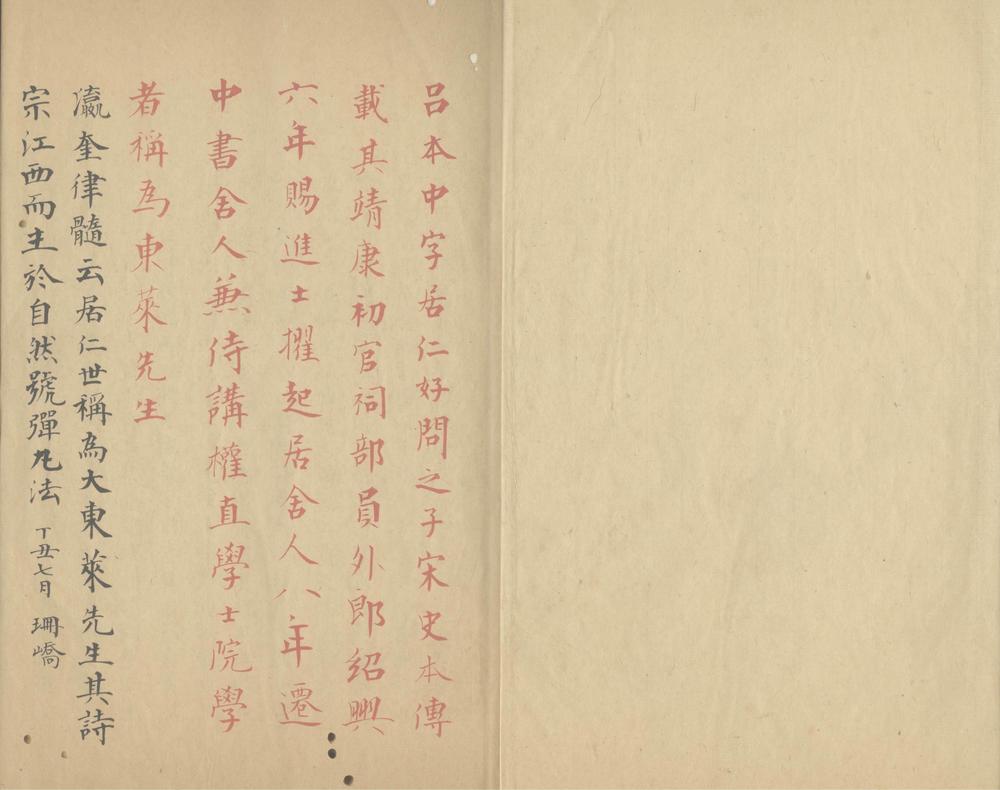 呂本中字居仁好問之子宋史本傳
載其靖康初官祠部員外郎紹興
六年賜進士擢起居舍人八年遷
中書舍人兼侍講權直學士院學
者稱爲東萊先生
瀛奎律髓云居仁世稱為大東萊先生其詩
宗江西而主於自然號彈丸法 丁丑七月 珊嶠